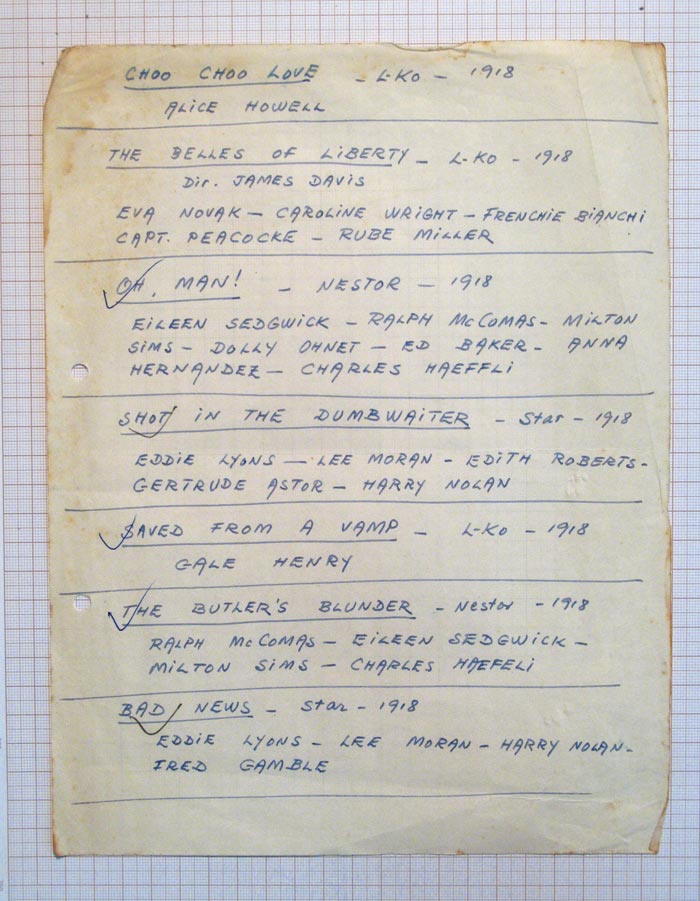 CHOO CHOO LOVE - L-KO - 1918
ALICE HOWELL
THE BELLES OF LIBERTY - L-KO - 1918
Dir. JAMES DAVIS
EVA NOVAK - CAROLINE WRIGHT - FRENCHIE BIANCHI
CAPT. PEACOCKE - RUBE MILLER
OH, MAN! - NESTOR - 1918
EILEEN SEDGWICK - RALPH McCOMAS - MILTON
SIMS - DOLLY OHNET - ED BAKER - ANNA
HERNANDEZ - CHARLES HAEFFLI
SHOT IN THE DUMBWAITER - Star - 1918
EDDIE LYONS - LEE MORAN - EDITH ROBERTS -
GERTRUDE ASTOR - HARRY NOLAN
SAVED FROM A VAMP - L-KO - 1918
GALE HENRY
THE BUTLER'S BLUNDER - Nestor - 1918
RALPH McCOMAS - EILEEN SEDGWICK -
MILTON SIMS - CHARLES HAEFELI
BAD NEWS - Star - 1918
EDDIE LYONS - LEE MORAN - HARRY NOLAN -
FRED GAMBLE